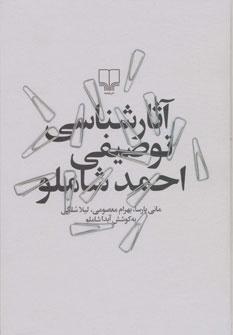 آثارشناسی
توصیفی
احمد شاملو
مانی پارسا، بهرام معصومی، لیلا سُلگی
به‌کوشش آیدا شاملو